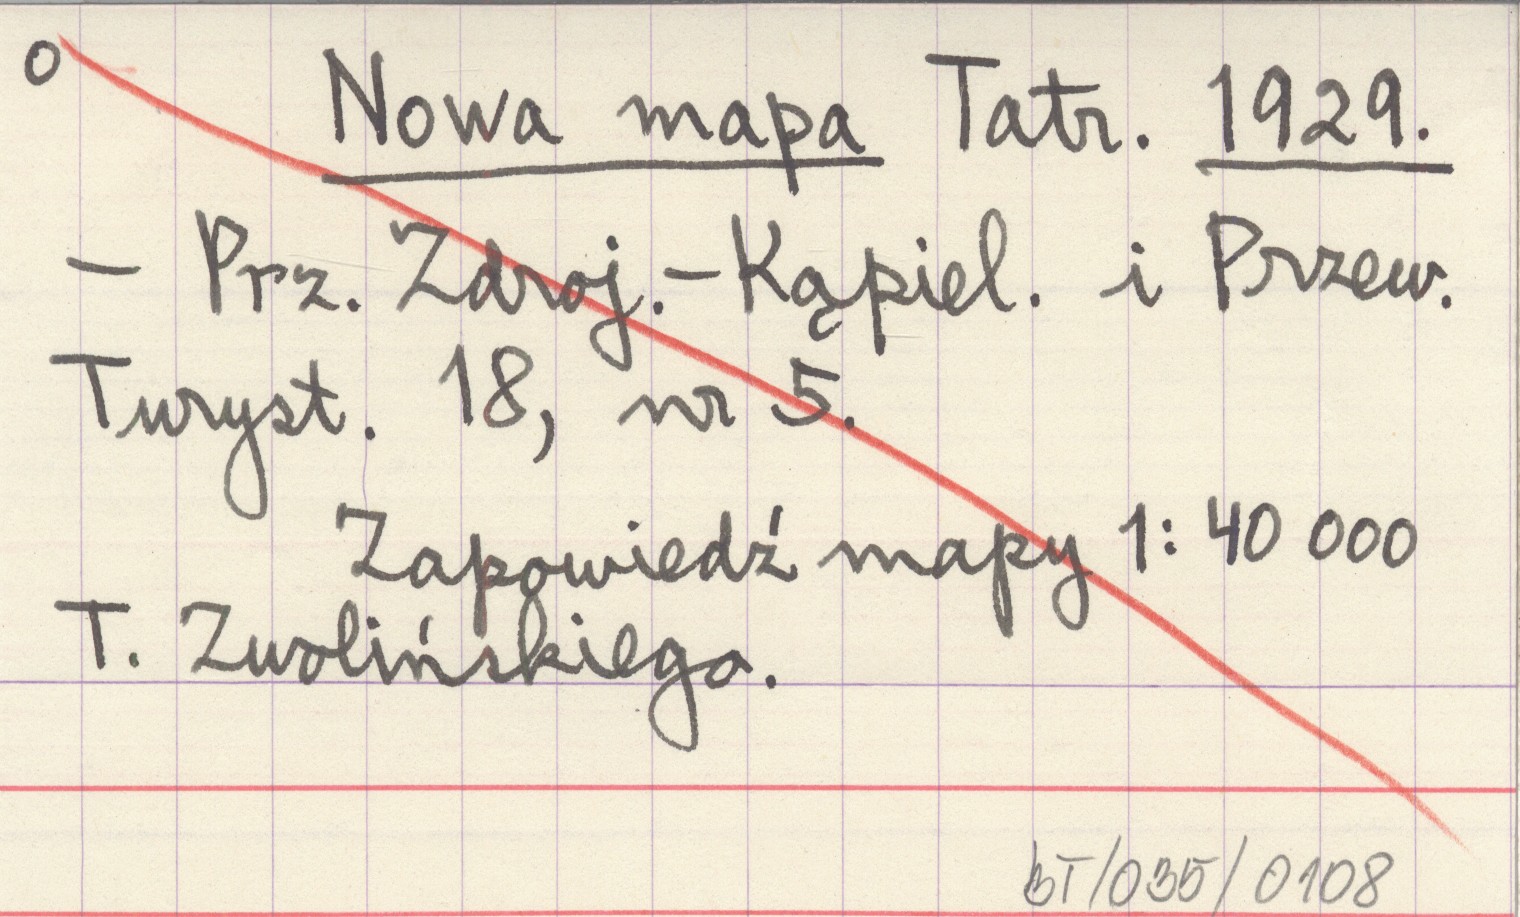 o
Nowa mapa Tatr. 1929.
– Prz. Zdroj.-Kąpiel. i Przew.
Turyst. 18, nr 5.
Zapowiedź mapy 1:40 000
T. Zwolińskiego.
BT/035/0108